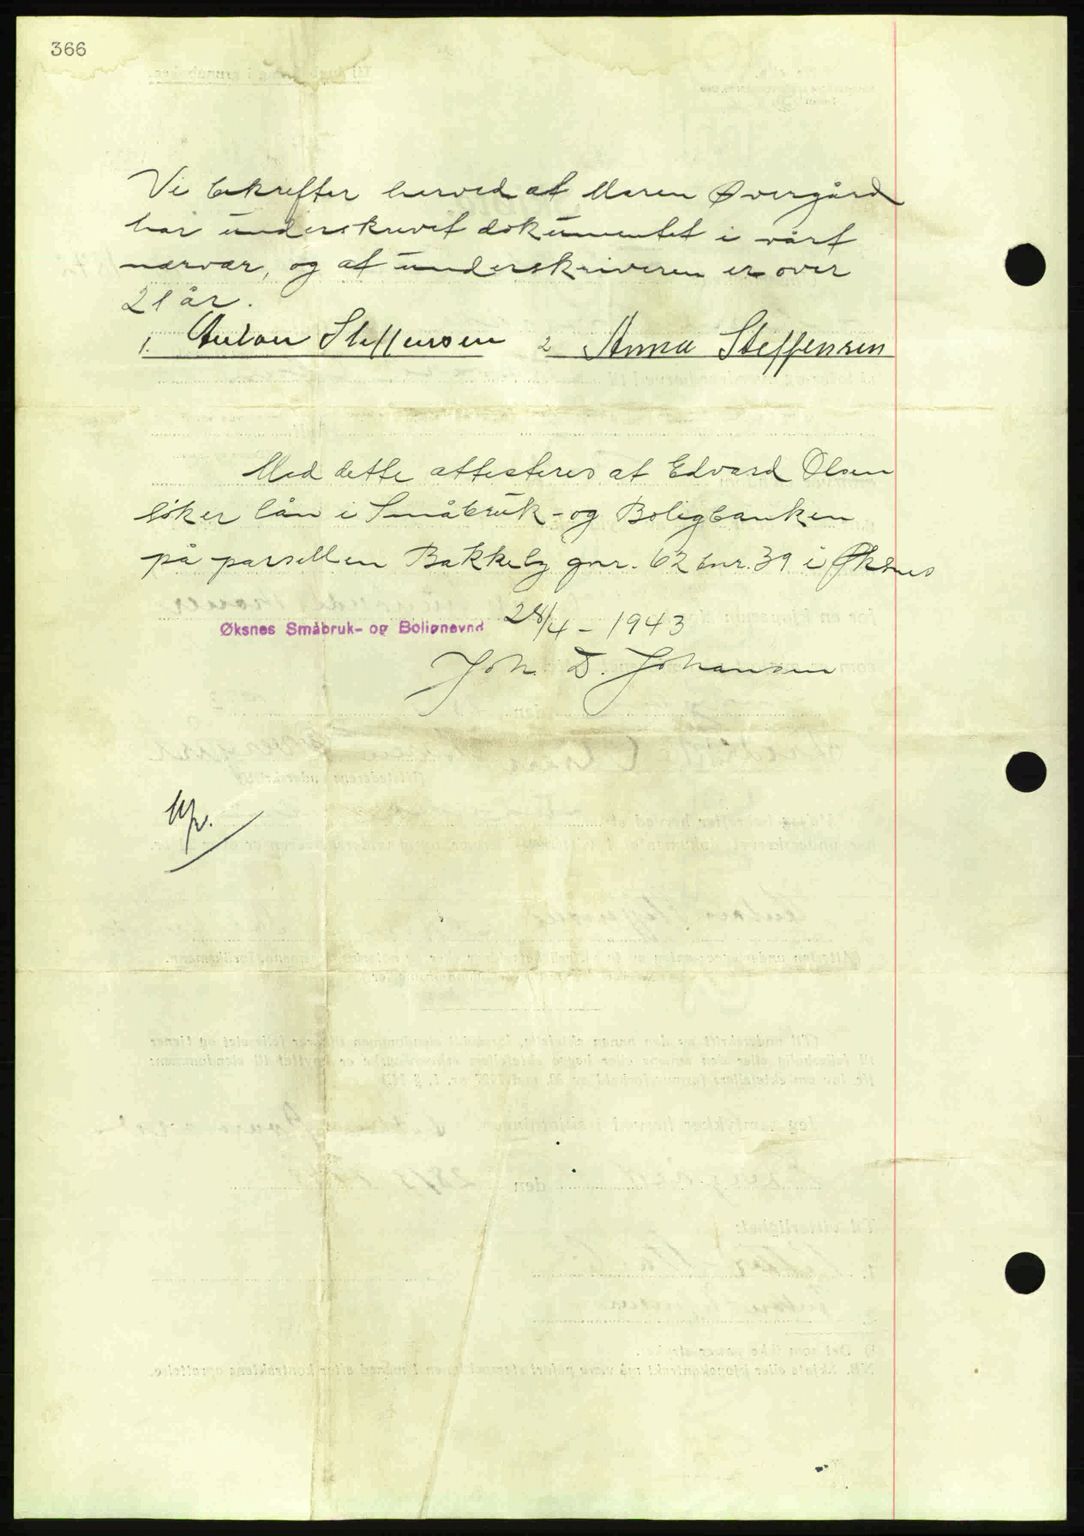 366
Vi bekrefter herved at Maren Øvergård
har underskrevet dokumentet i vårt
nærvær, og at underskriveren er over
21 år.
1. Anton Steffensen 2 Anna Steffensen
Med dette attesteres at Edvard Olsen
söker lån i Småbruk- og Boligbanken
på parsellen Bakkeby gnr. 62 bnr. 39 i Øksnes
28/4 - 1943
Øksnes Småbruk- og Bolignevnd
Joh. D. Johansen